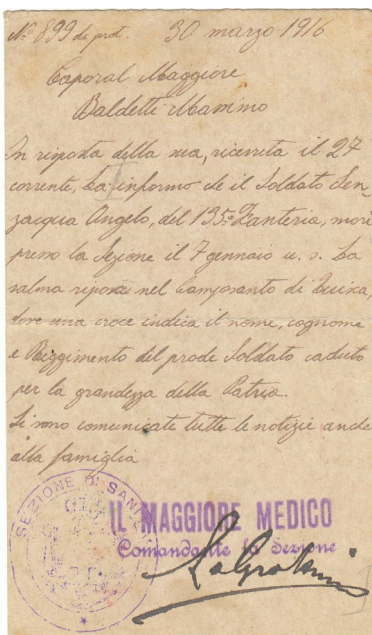 N.º 899 di prot. 30 marzo 1916
Caporal Maggiore
Baldetti Mammo
In risposta della sua, ricevuta il 27
corrente, La informo che il Soldato Sen-
zacqua Angelo, del 135º Fanteria, morì
presso la Sezione il 7 gennaio u. s. La
salma riposa nel Camposanto di
dove una croce indica il nome, cognome
e Reggimento del prode Soldato caduto
per la grandezza della Patria.
Si sono comunicate tutte le notizie anche
alla famiglia
SEZIONE DI SANITÀ
IL MAGGIORE MEDICO
Comandante la Sezione